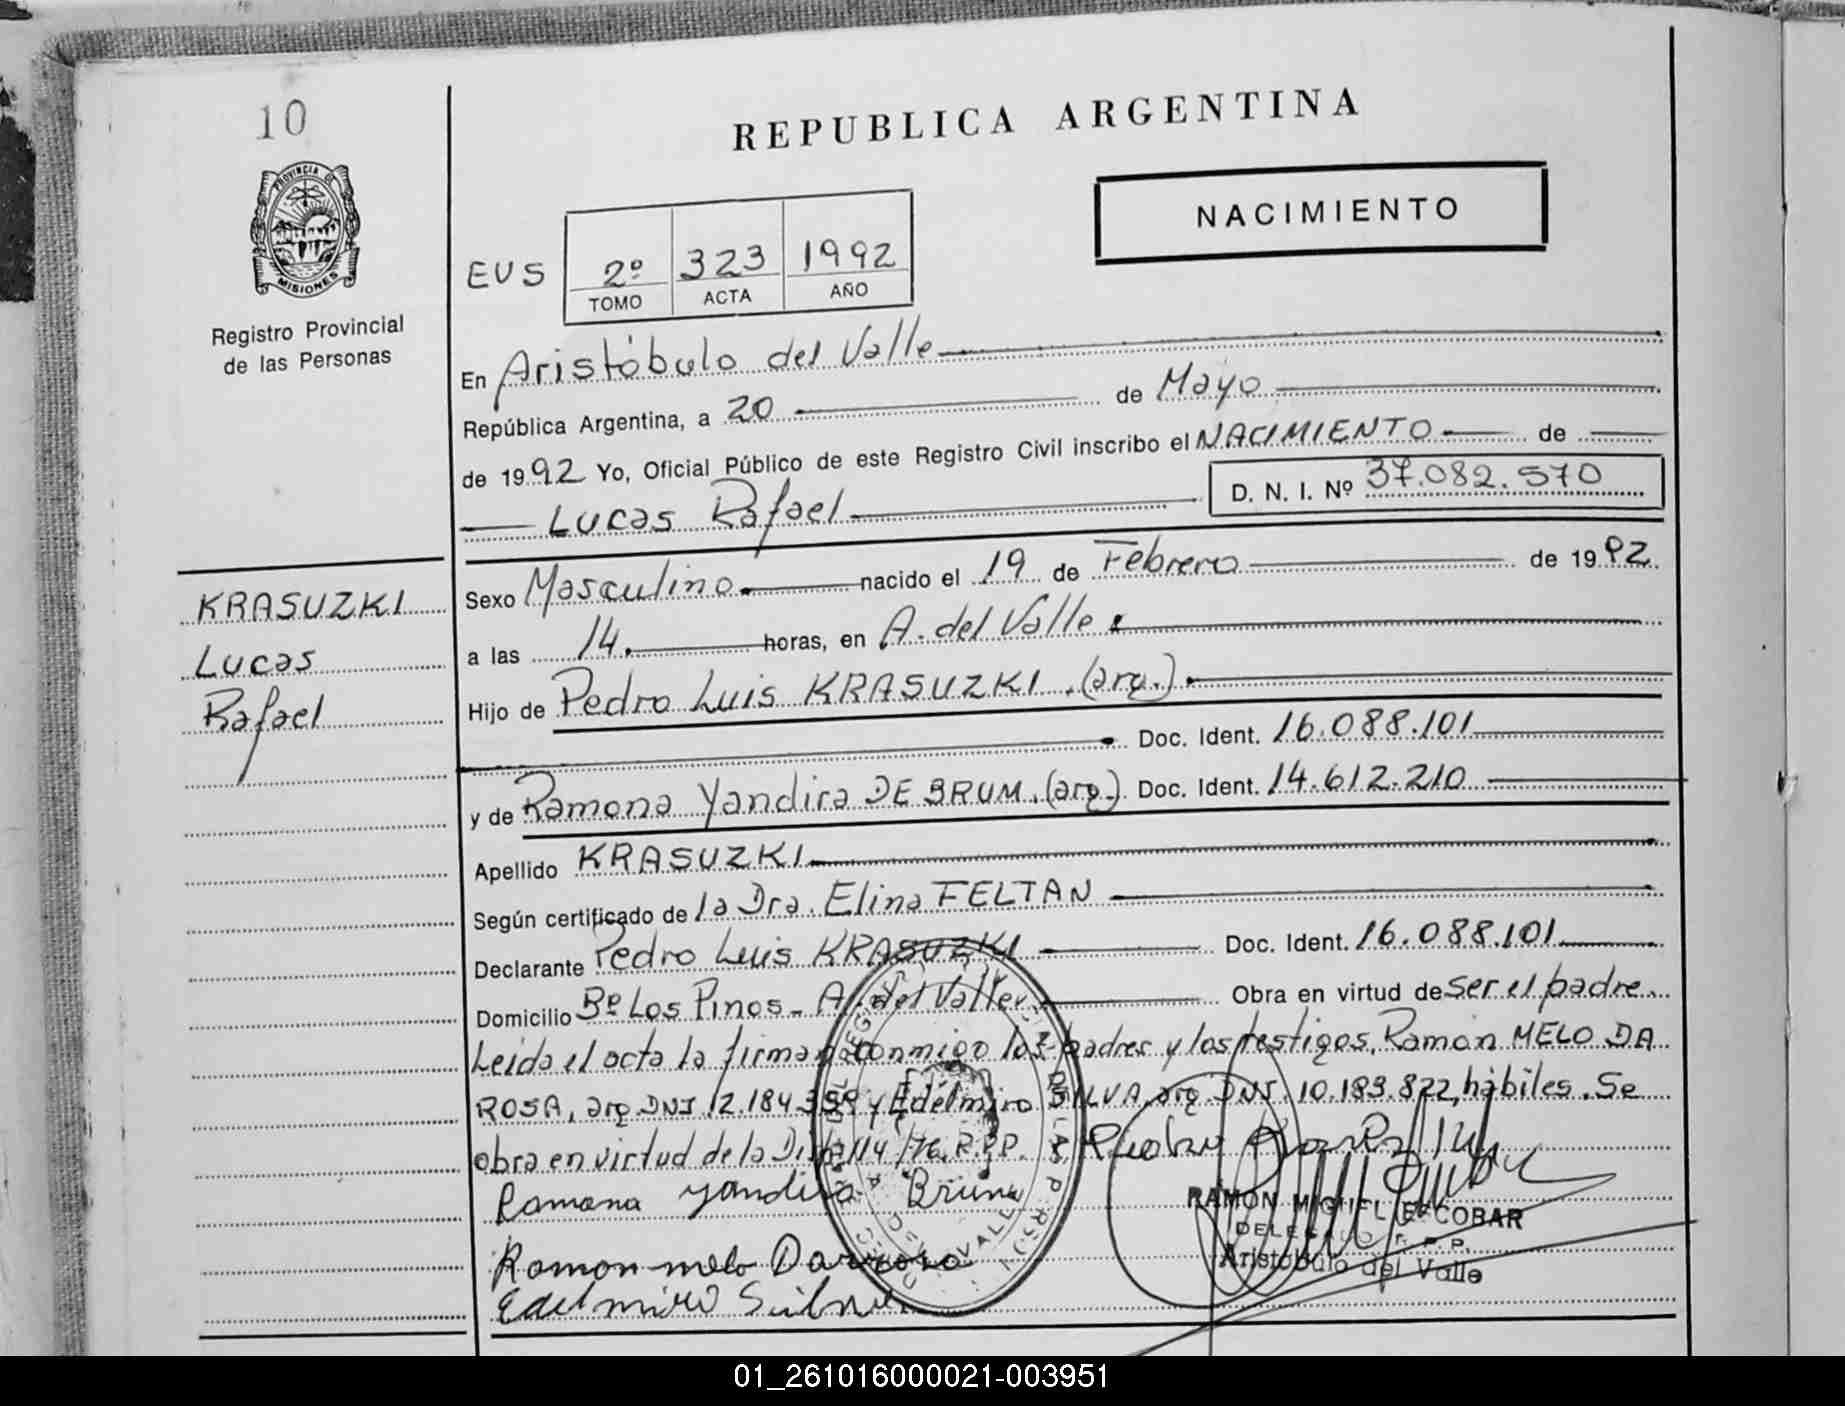 10
REPUBLICA ARGENTINA
PROVINCIA DE
MISIONES
Registro Provincial
de las Personas
NACIMIENTO
EUS 2º 323 1992
TOMO ACTA AÑO
En Aristóbulo del Valle
República Argentina, a 20 de Mayo
de 1992 Yo, Oficial Público de este Registro Civil inscribo el NACIMIENTO de
Lucas Rafael D. N. I. Nº 37.082.570
KRASUZKI
Lucas
Rafael
Sexo Masculino nacido el 19 de Febrero de 1992.
a las 14. horas, en A. del Valle
Hijo de Pedro Luis KRASUZKI. (arg.).
Doc. Ident. 16.088.101
y de Ramona Yandira DE BRUM. (arg.). Doc. Ident. 14.612.210
Apellido KRASUZKI
Según certificado de la Dra. Elina FELTAN
Declarante Pedro Luis KRASUZKI Doc. Ident. 16.088.101
Domicilio Bº Los Pinos - A. del Valle Obra en virtud de ser el padre.
Leida el acta la firman conmigo los padres y los testigos, Ramón MELO DA
ROSA, arg DNI 12.184 y Edelmiro SILVA, arg DNI. 10.183.822, hábiles. Se
obra en virtud de la R.P.P.
Ramona Yandira Brum
RAMON MIGUEL ESCOBAR
DELEGADO R. P. P.
Aristóbulo del Valle
Ramon melo Darrosa
Edelmiro Silva
01_261016000021-003951